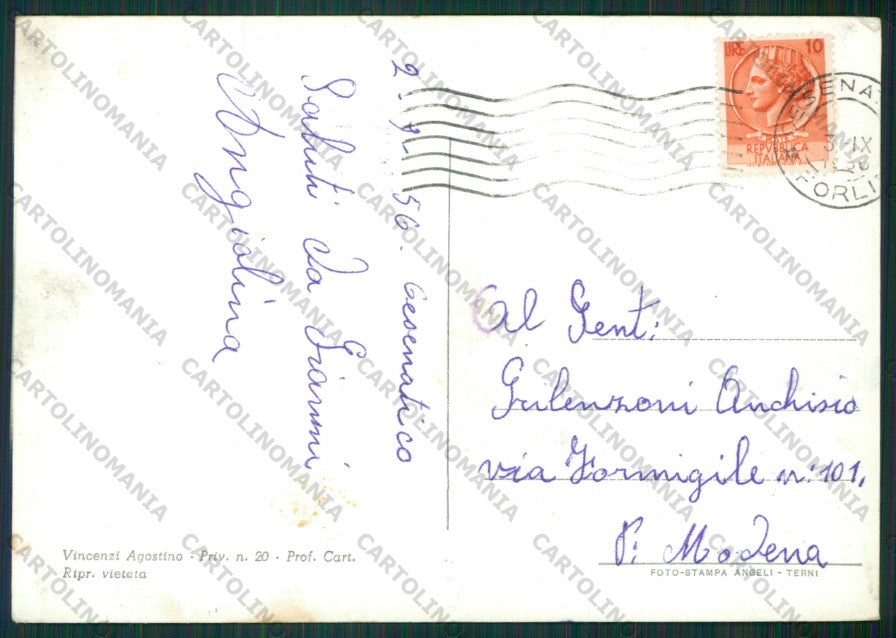 2-9-56. Cesenatico
Saluti da Gianni
Angiolina
LIRE 10
POSTE
REPVBBLICA
ITALIANA
3.IX
FORLI
Al Gent:
Gulenzoni Anchisio
via Formigile n: 101,
P: Modena
Vincenzi Agostino - Priv. n. 20 - Prof. Cart.
Ripr. vietata
FOTO-STAMPA ANGELI - TERNI
CARTOLINOMANIA